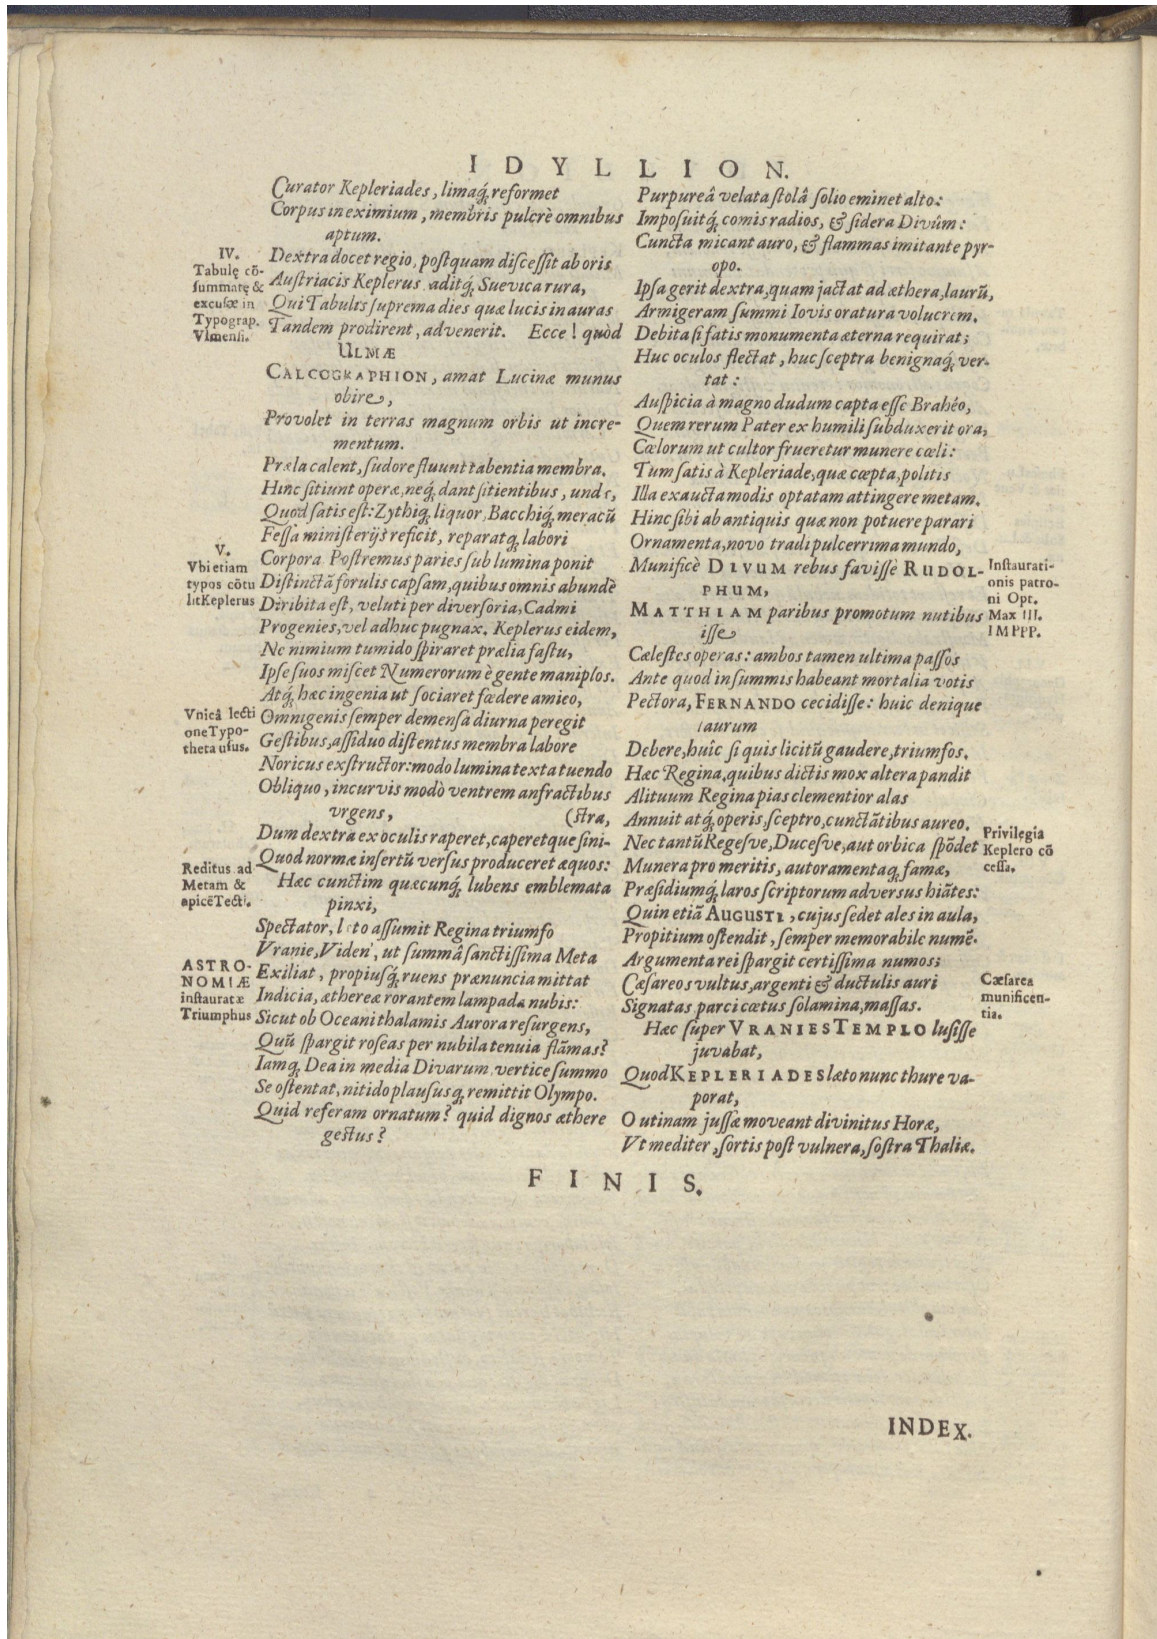 IDYLLION.
Curator Kepleriades, limaq́; reformet
Corpus in eximium, membris pulcrè omnibus
aptum.
IV.
Tabulę cō-
summatę &
excusæ in
Typograp.
Vlmensi.
Dextra docet regio, postquam discessit ab oris
Austriacis Keplerus aditq́; Suevica rura,
Qui Tabulis suprema dies quæ lucis in auras
Tandem prodirent, advenerit. Ecce! quòd
ULMÆ
CALCOGRAPHION, amat Lucinæ munus
obire,
Provolet in terras magnum orbis ut incre-
mentum.
Præla calent, sudore fluunt tabentia membra.
Hinc sitiunt operæ, neq́; dant sitientibus, undæ,
Quod satis est: Zythiq́; liquor, Bacchiq́; meracū
Fessa ministerijs reficit, reparatq́; labori
V.
Vbi etiam
typos cōtu
lit Keplerus
Corpora Postremus paries sub lumina ponit
Distinctā forulis capsam, quibus omnis abundè
Diribita est, veluti per diversoria, Cadmi
Progenies, vel adhuc pugnax. Keplerus eidem,
Ne nimium tumido spiraret prælia fastu,
Ipse suos miscet Numerorum è gente maniplos.
Atq́; hæc ingenia ut sociaret fœdere amico,
Vnicâ lecti
one Typo-
theta usus.
Omnigenis semper demensa diurna peregit
Gestibus, assiduo distentus membra labore
Noricus exstructor: modo lumina texta tuendo
Obliquo, incurvis modò ventrem anfractibus
vrgens, (stra,
Dum dextra ex oculis raperet, caperetque sini-
Quod normæ insertū versus produceret æquos:
Reditus ad
Metam &
apicē Tecti.
Hæc cunctim quæcunq́; lubens emblemata
pinxi,
Spectator, læto assumit Regina triumfo
Vranie, Viden', ut summâ sanctissima Meta
ASTRO-
NOMIÆ
instauratæ
Triumphus
Exiliat, propiusq́; ruens prænuncia mittat
Indicia, æthereæ rorantem lampada nubis:
Sicut ob Oceani thalamis Aurora resurgens,
Quū spargit roseas per nubila tenuia flāmas?
Iamq́; Dea in media Divarum vertice summo
Se ostentat, nitido plaususq́; remittit Olympo.
Quid referam ornatum? quid dignos æthere
gestus?
Purpureâ velata stolâ solio eminet alto:
Imposuitq́; comis radios, & sidera Divûm:
Cuncta micant auro, & flammas imitante pyr-
opo.
Ipsa gerit dextra, quam jactat ad æthera, laurū,
Armigeram summi Iovis oratura volucrem.
Debita si fatis monumenta æterna requirat;
Huc oculos flectat, huc sceptra benignaq́; ver-
tat:
Auspicia à magno dudum capta esse Brahéo,
Quem rerum Pater ex humili subduxerit ora,
Cœlorum ut cultor frueretur munere cœli:
Tum satis à Kepleriade, quæ cœpta, politis
Illa exaucta modis optatam attingere metam.
Hinc sibi ab antiquis quæ non potuere parari
Ornamenta, novo tradi pulcerrima mundo,
Munificè DIVUM rebus favisse RUDOL-
PHUM,
Instaurati-
onis patro-
ni Opt.
Max III.
IMPPP.
MATTHIAM paribus promotum nutibus
isse
Cælestes operas: ambos tamen ultima passos
Ante quod in summis habeant mortalia votis
Pectora, FERNANDO cecidisse: huic denique
laurum
Debere, huîc si quis licitū gaudere, triumfos.
Hæc Regina, quibus dictis mox altera pandit
Alituum Regina pias clementior alas
Annuit atq́; operis, sceptro, cunctātibus aureo.
Privilegia
Keplero cō
cessa.
Nec tantū Regesve, Ducesve, aut orbica spōdet
Munera pro meritis, autoramentaq́; famæ,
Præsidiumq́; laros scriptorum adversus hiātes:
Quin etiā AUGUSTI, cujus sedet ales in aula,
Propitium ostendit, semper memorabile numē.
Argumenta rei spargit certissima numos;
Cæsarea
munificen-
tia.
Cæsareos vultus, argenti & ductulis auri
Signatas parci cœtus solamina, massas.
Hæc super VRANIES TEMPLO lusisse
juvabat,
Quod KEPLERIADES læto nunc thure va-
porat,
O utinam jussæ moveant divinitus Horæ,
Vt mediter, sortis post vulnera, sostra Thaliæ.
FINIS.
INDEX.